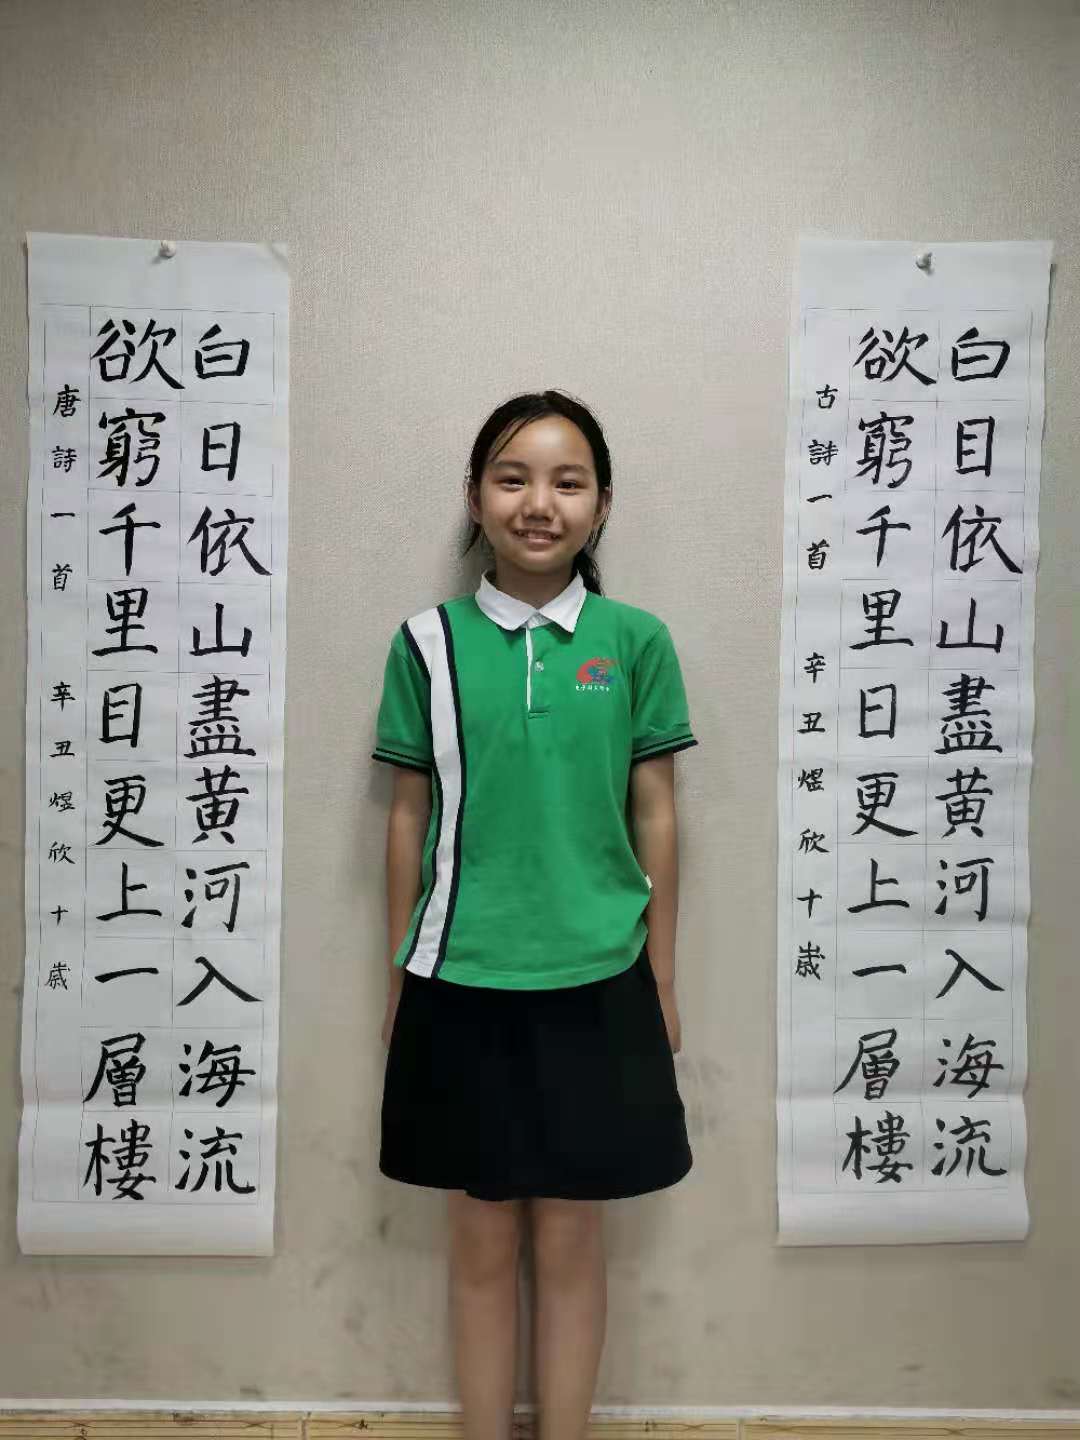 白日依山盡黄河入海流
欲窮千里目更上一層樓
唐詩一首 辛丑煜欣十歲
白目依山盡黄河入海流
欲窮千里日更上一層樓
古詩一首 辛丑煜欣十歲